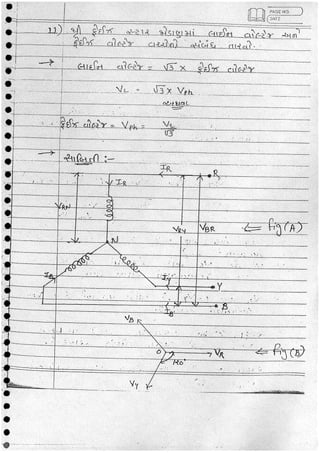 PAGE NO.
DATE
11) થ્રી ફેઈઝ સ્ટાર જોડાણમાં લાઈન વોલ્ટેજ અને
ફેઈઝ વોલ્ટેજ વચ્ચેનો સંબંધ તારવો.
→ લાઈન વોલ્ટેજ = √3 × ફેઈઝ વોલ્ટેજ
VL = √3 × Vph
અથવા
ફેઈઝ વોલ્ટેજ = Vph = VL/√3
→ સાબિતી :-
IR
R
IR
VRN
VRY
VBR
⇐ Fig (A)
N
IB
IY
Y
B
IB
VB
O
VR
⇐ Fig (B)
120°
VY